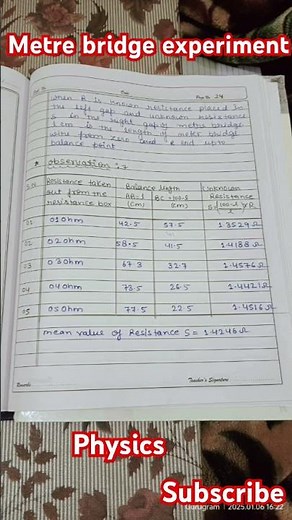 Metre bridge experiment
Date
Page No. 24
when R is known resistance placed in
the left gap and unknown resistance
S in the right gap of metre bridge
l cm is the length of meter bridge
wire from zero end upto
balance point
* observation :-
S.No Resistance taken Balance length Unknown
out from the AB=l BC=100-l Resistance
resistance box (cm) (cm)
01 01 Ohm 42.5 57.5 1.3529Ω
02 02 Ohm 58.5 41.5 1.4188Ω
03 03 Ohm 67.3 32.7 1.4576Ω
04 04 Ohm 73.5 26.5 1.4421Ω
05 05 Ohm 77.5 22.5 1.4516Ω
mean value of Resistance S = 1.4246Ω
Teacher's Signature
Remarks
Physics
Gurugram | 2025.01.06 16:22
Subscribe